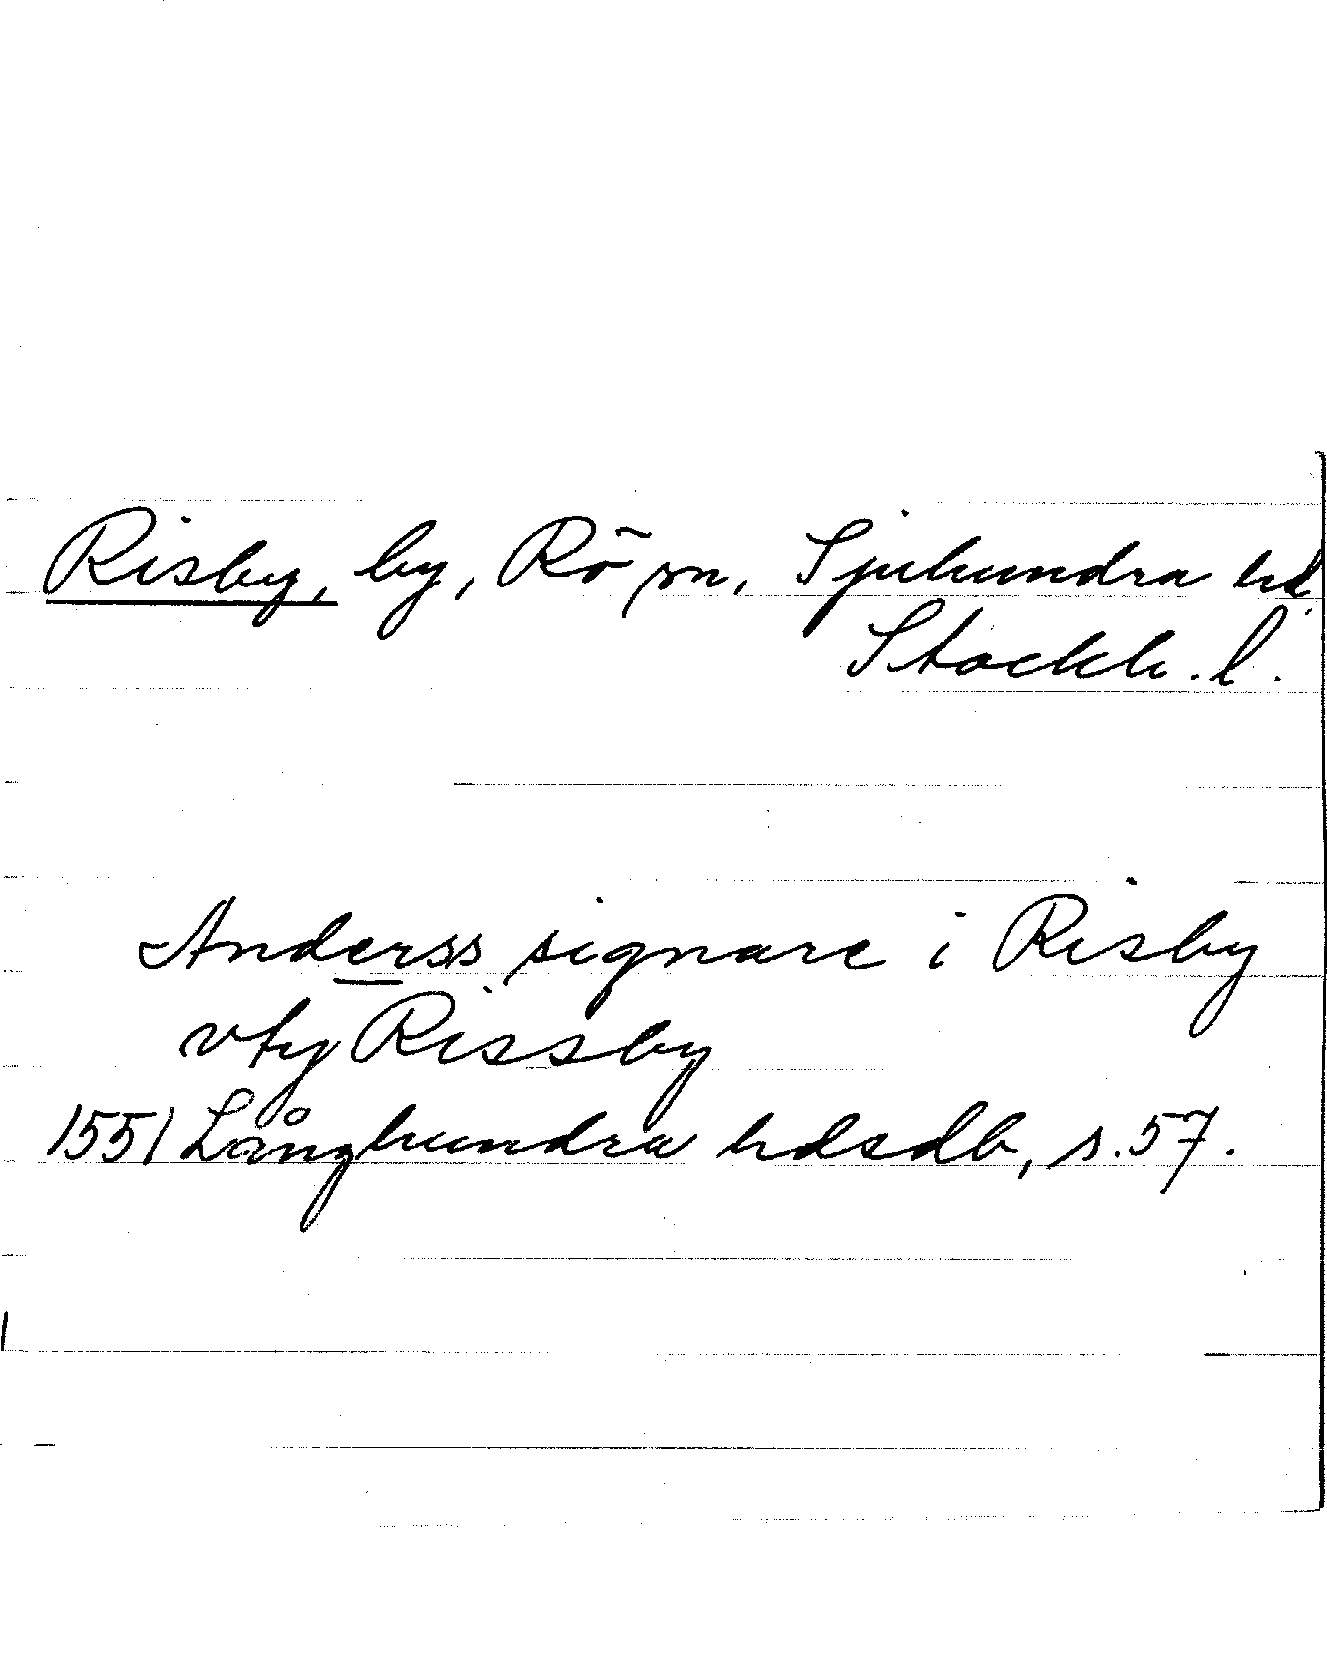 Risby, by, Rö sn, Sjuhundra hd.
Stockh. l.
Anderss signare i Risby
vty Rissby
1551 Långhundra hdsdb, s. 57.